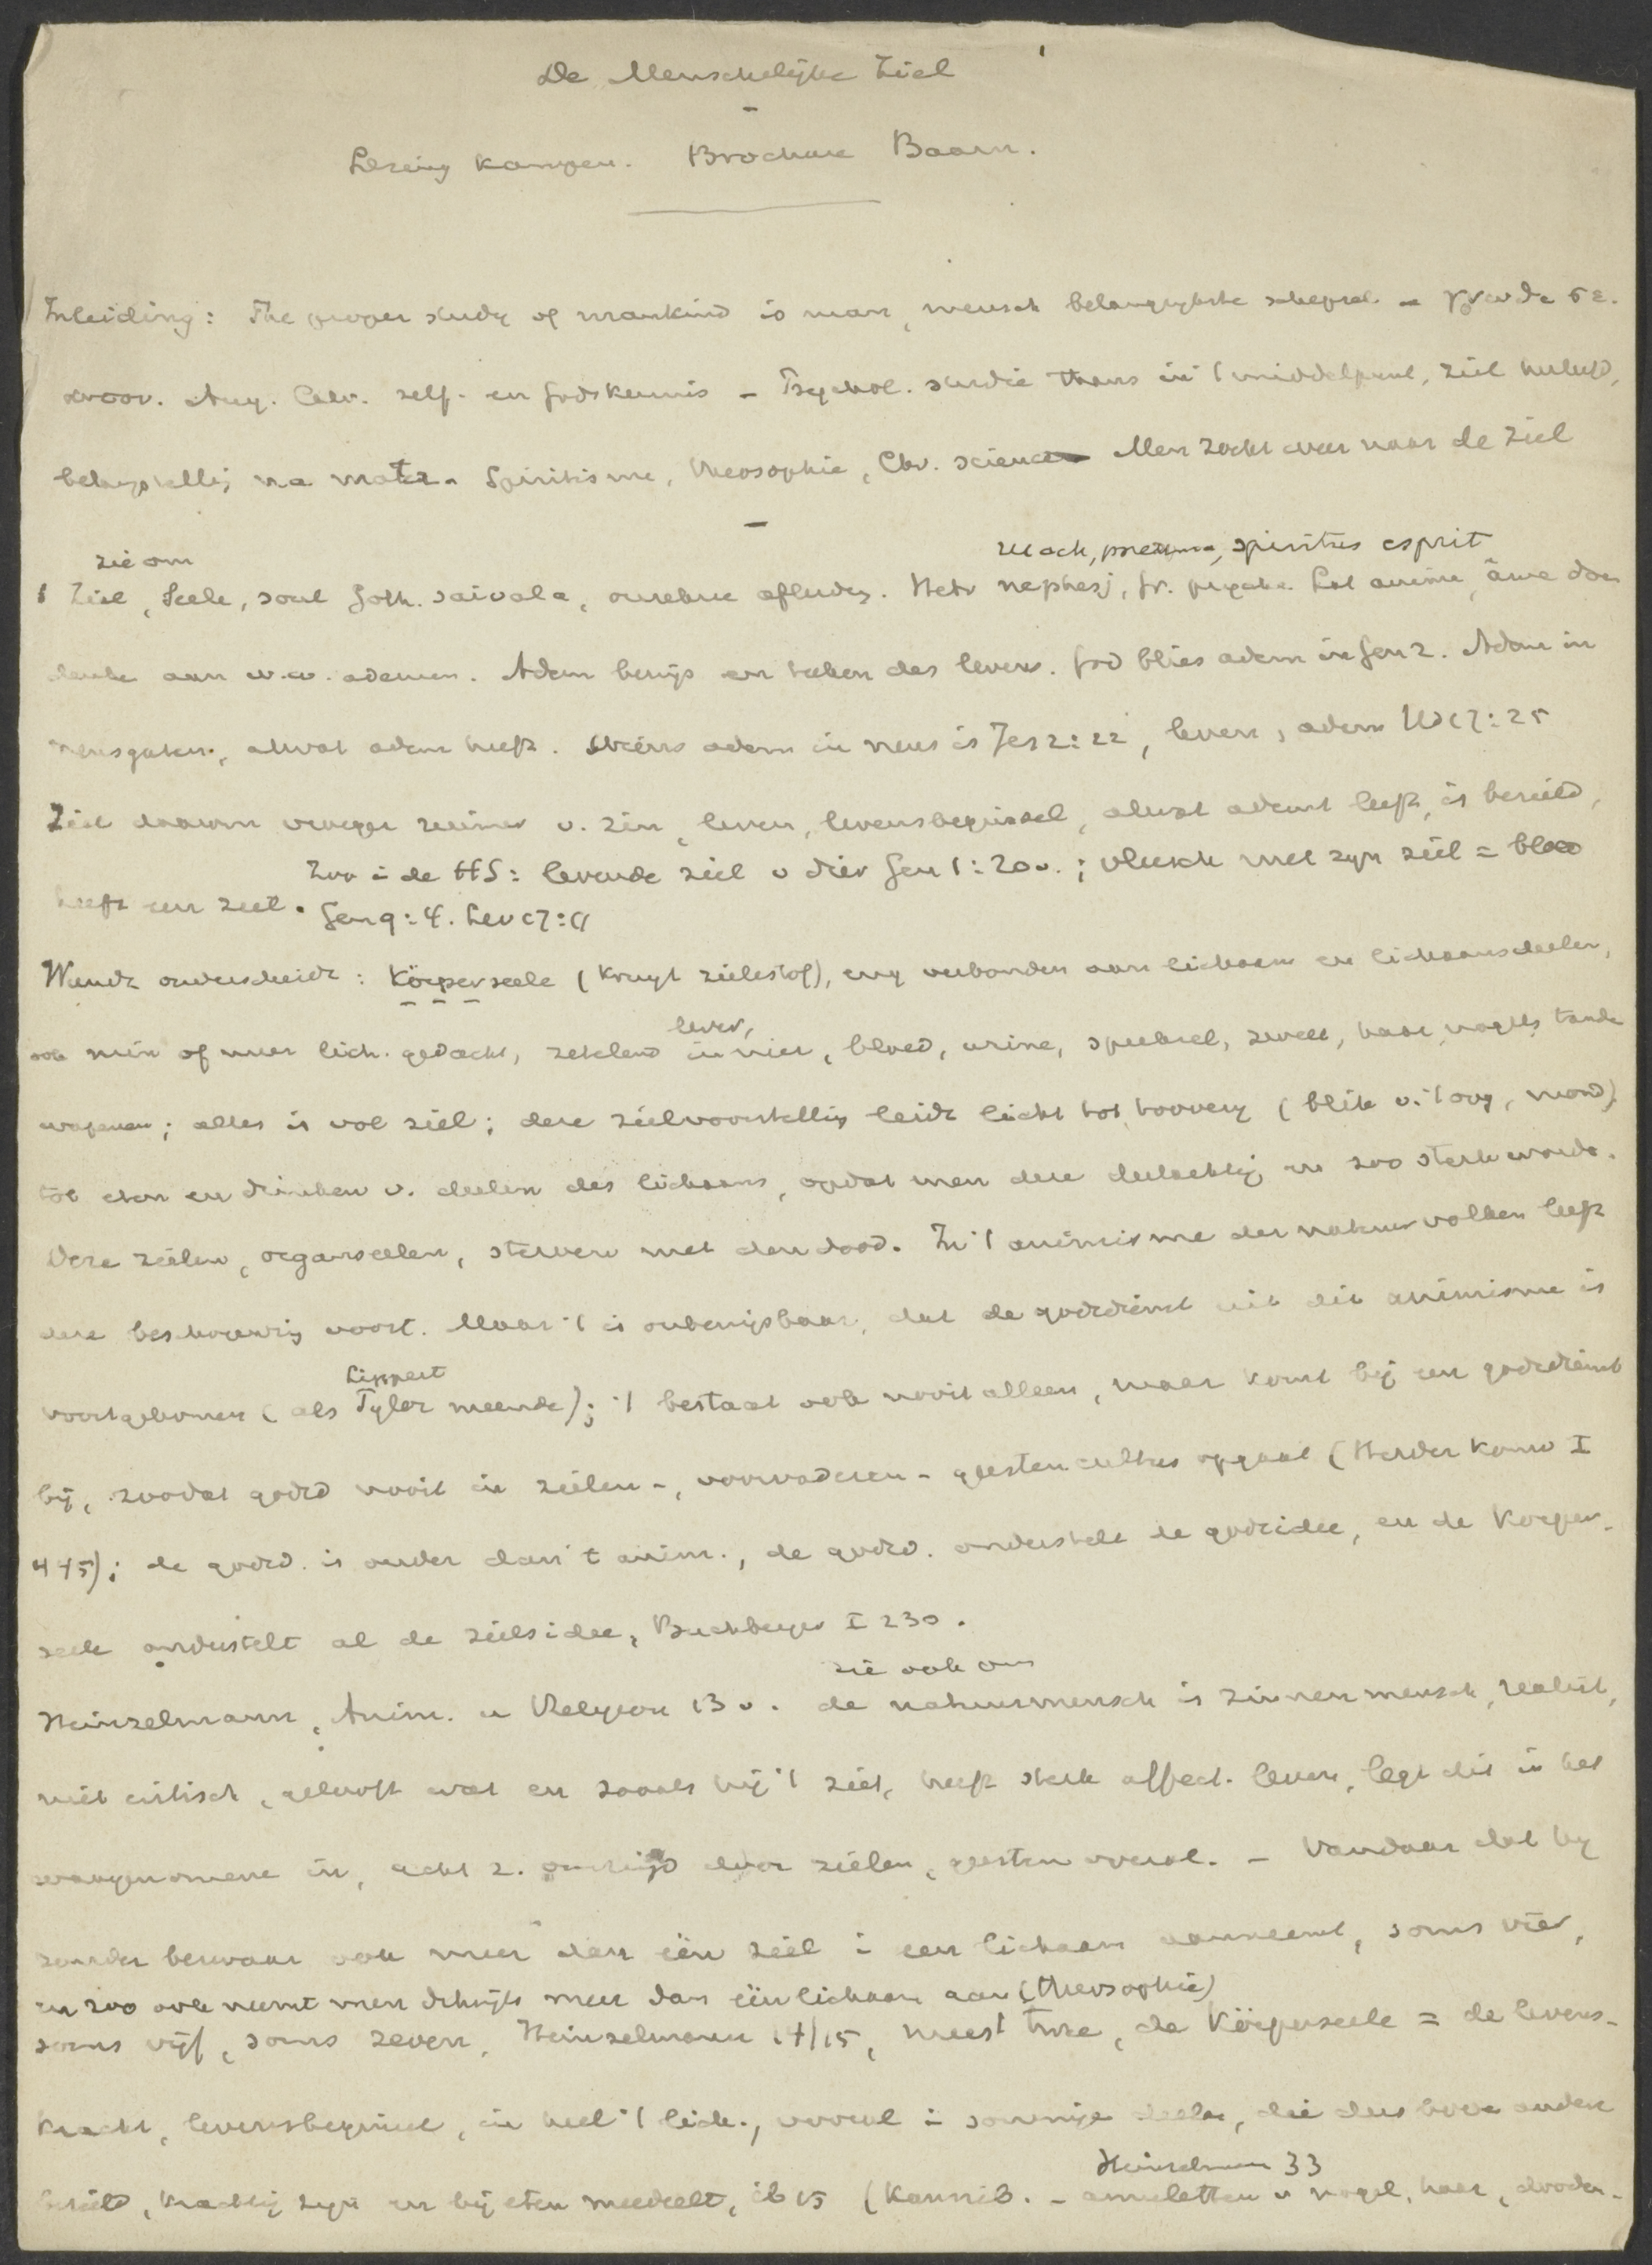 De Menschelijke Ziel
Lezing Kampen. Brochure Baarn.
Inleiding: The proper study of mankind is man, mensch belangrijkste schepsel. -
Aug. Calv. zelf- en Godskennis - Psychol. studie thans in 't middelpunt, ziel
belangstellg na mater. Spiritisme, Theosophie, Chr. science Men zoekt weer naar de ziel
zie om
ruach, pneuma, spiritus esprit
1 Ziel, Seele, soul Goth. saivala, onzekere afleidg. Hebr nephesj, Gr. psyche. Lat anima, âme
aan w.w. ademen. Adem bewijs en teeken des levens. God blies adem in Gen 2. Adem in
neusgaten, alwat adem heeft. Wiens adem in neus is Jes 2:22, leven, adem Hd 17:25
Ziel daarom vroeger ruimer v. zin, leven, levensbeginsel, alwat ademt leeft, is bezield,
Zoo i de HS: levende ziel v dier Gen 1:20v.; vleesch met zyn ziel = bloed
heeft een ziel. Gen 9:4. Lev 17:11
Wundt onderscheidt: Körperseele (Kruyt zielestof), eng verbonden aan lichaam en lichaamsdeelen,
lever,
ook min of meer lich. gedacht, zetelend in nier, bloed, urine, speeksel, zweet, haar, nagels, tande
wapenen; alles is vol ziel; deze zielvoorstellig leidt licht tot toovery (blik v. 't oog, mond),
tot eten en drinken v. deelen des lichaams, opdat men deze deelachtig en zoo sterk worde.
Deze zielen, orgaanseelen, sterven met den dood. In 't animisme der natuurvolken leeft
deze beschouwing voort. Maar 't is onbewijsbaar, dat de godsdienst uit dit animisme is
Lippert
voortgekomen (als Tylor meende); 't bestaat ook nooit alleen, maar komt bij een godsdienst
bij, zoodat godsd nooit in zielen-, voorvaderen- geestencultus opgaat (Herder Konv I
445); de godsd. is ouder dan 't anim., de godsd. onderstelt de godsidee, en de Körper-
seele onderstelt al de zielsidee, Buchberger I 230.
zie ook om
Heinzelmann, Anim. u Religion 13 v. de natuurmensch is zinnenmensch, realist,
niet critisch, gelooft wat en zooals hij 't ziet, heeft sterk affect. leven, legt dit in het
waargenomene in, acht z. omringd door zielen, geesten overal. - Vandaar dat hij
zonder bezwaar ook meer dan één ziel i een lichaam aanneemt, soms vier,
en zoo ook neemt men dikwijls meer dan één lichaam aan (theosophie)
soms vijf, soms zeven, Heinzelmann 14/15, meest twee, de Körperseele = de levens-
kracht, levensbeginsel, in heel 't lich., vooral i sommige deelen, die dus boven andere
Heinzelmann 33
bezield, krachtig zijn en bij eten meedeelt, ib 15 (Kannib. - amuletten v nagel, haar, dooden-